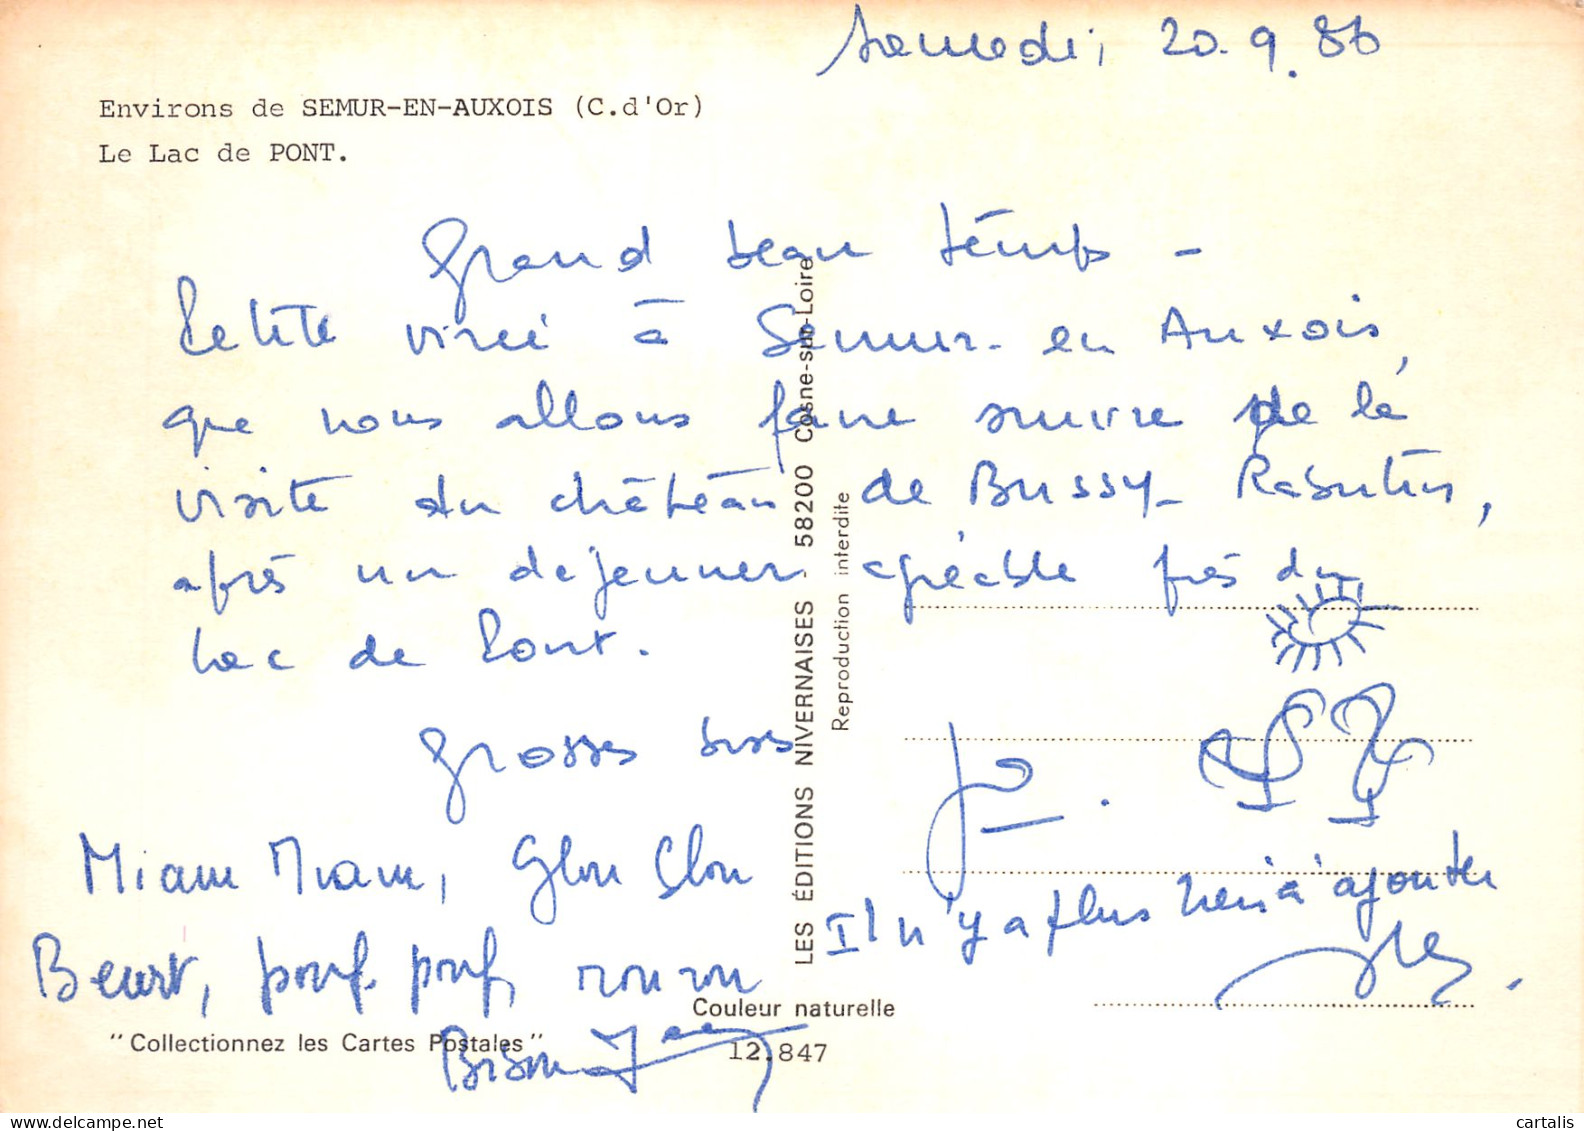 Samedi, 20.9.86
Environs de SEMUR-EN-AUXOIS (C.d'Or)
Le Lac de PONT.
Grand beau temps -
Petite virée à Semur-en Auxois,
que nous allons faire suivre de la
visite du château de Bussy-Rabutin,
après un dejeuner agréable près du
Lac de Pont.
Grosses bises
Miam Miam, Glou Glou
Beurt, pouf pouf, ron ron
Bison
Il n'y a plus rien à ajouter
LES ÉDITIONS NIVERNAISES - 58200 Cosne-sur-Loire
Reproduction interdite
Couleur naturelle
"Collectionnez les Cartes Postales"
12.847
cartalis